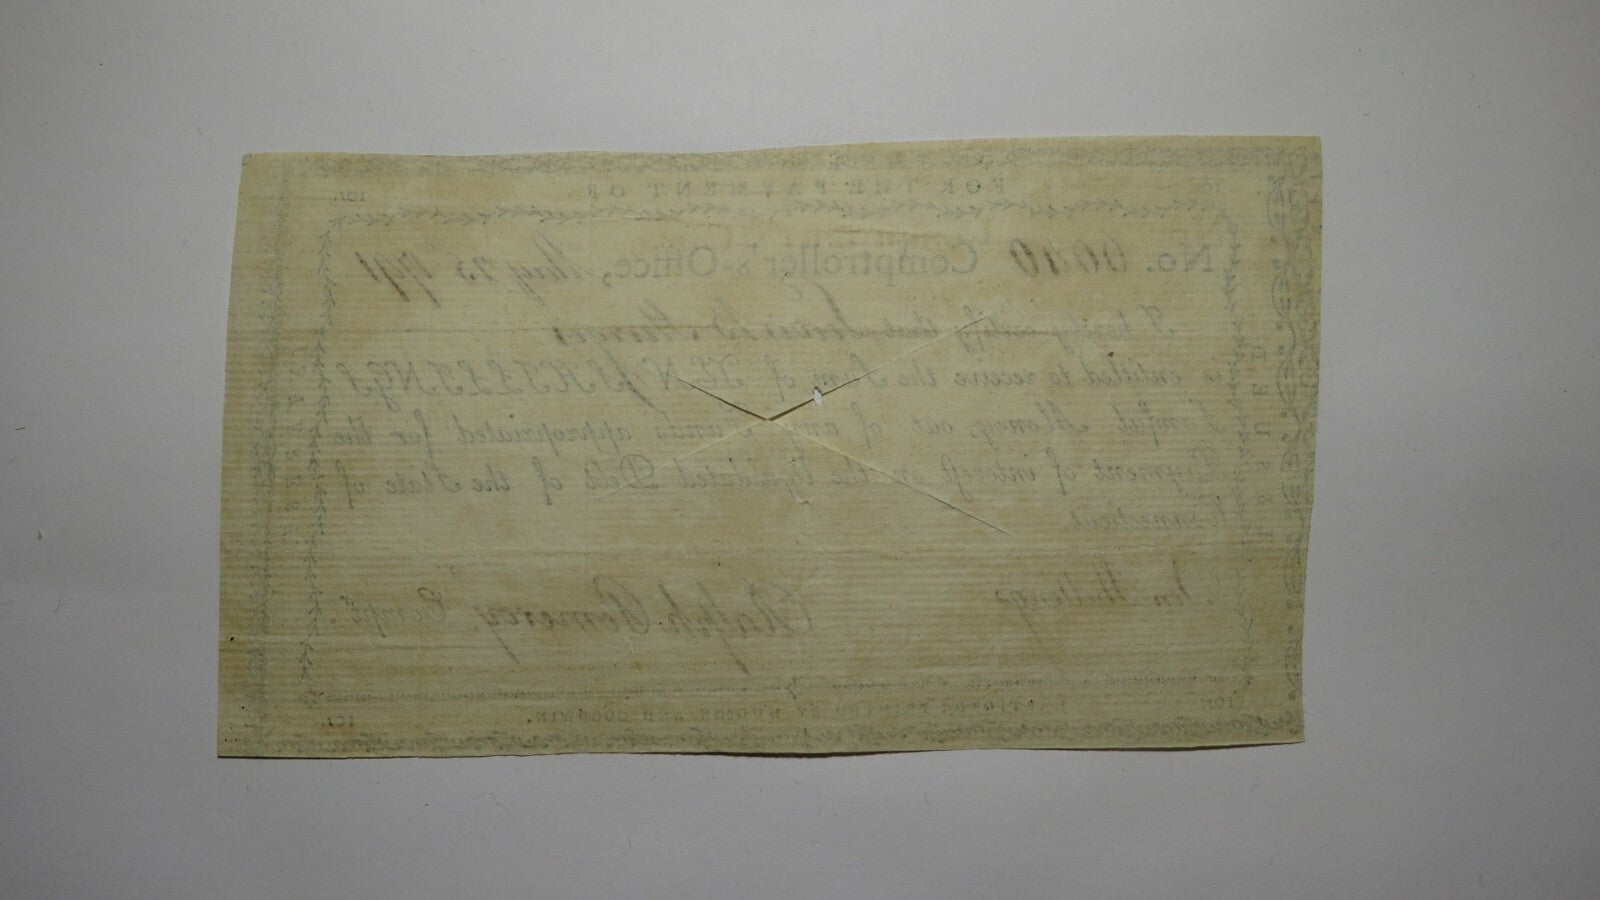 FOR THE PAYMENT OF
10s.
No. Comptroller's-Office, May 25 1791
I hereby certify that
is entitled to receive the Sum of TEN SHILLINGS
Lawful Money, out of any Funds appropriated for the
Payment of interest on the liquidated Debt of the State of
Connecticut.
Ten Shillings
Ralph Pomeroy Compt.
ISSUED
HARTFORD: PRINTED BY HUDSON AND GOODWIN.
10s.
10s.